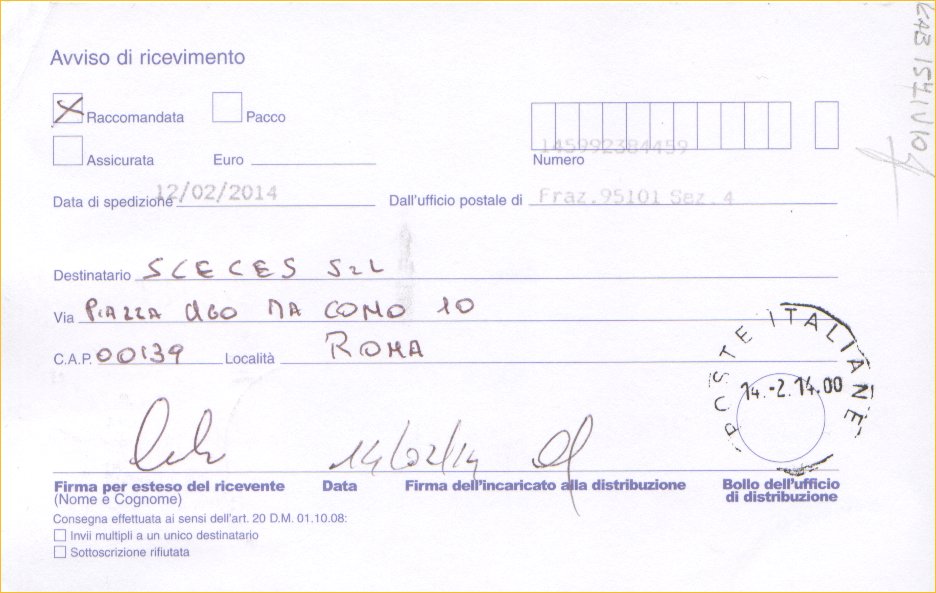 Avviso di ricevimento
Raccomandata Pacco
Assicurata Euro
145992384459
Numero
Data di spedizione 12/02/2014 Dall'ufficio postale di Fraz.95101 Sez.4
Destinatario SCECES SRL
Via PIAZZA UGO DA COMO 10
C.A.P. 00139 Località ROMA
POSTE ITALIANE
14.-2.14.00
14/02/14
Firma per esteso del ricevente Data Firma dell'incaricato alla distribuzione Bollo dell'ufficio
(Nome e Cognome) di distribuzione
Consegna effettuata ai sensi dell'art. 20 D.M. 01.10.08:
Invii multipli a un unico destinatario
Sottoscrizione rifiutata